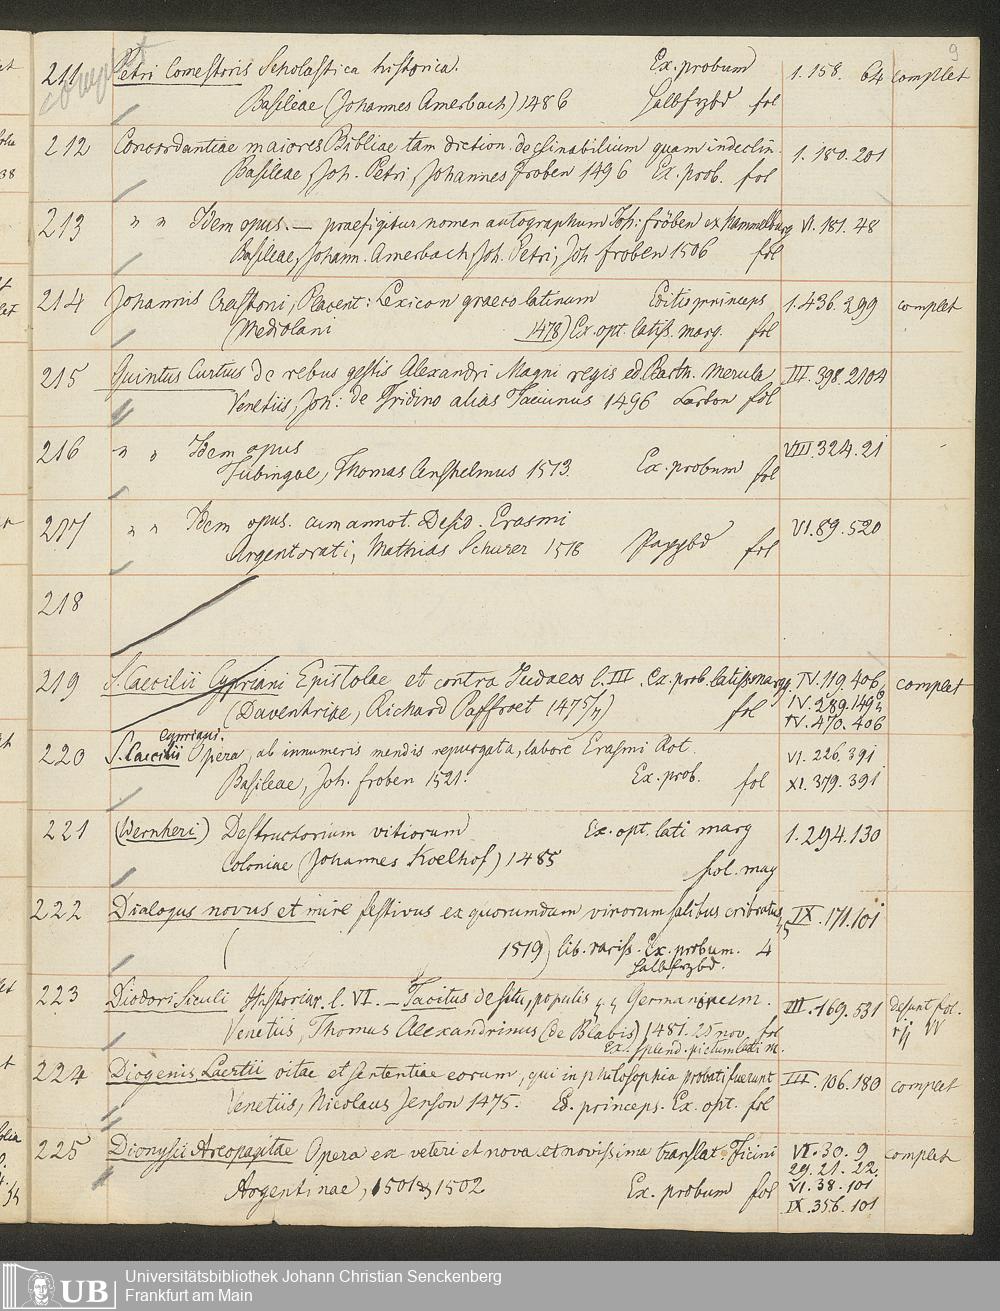 9
211 Petri Comestoris Scholastica historica. Ex. probum 1. 158. 64 complet
complet
Basileae (Johannes Amerbach) 1486 Halbfrzbd fol
212 Concordantiae maiores Bibliae tam diction. declinabilium quam indeclin. 1. 150. 201
Basileae, Joh. Petri, Johannes froben 1496 Ex. prob. fol
213 " " Idem opus. — praefigitur nomen autographum Joh: fröben ex Hammelburg VI. 181. 48
Basileae, Johann. Amerbach, Joh. Petri, Joh froben 1506 fol
214 Johannis Crastoni, Placent: Lexicon graeco latinum Editio princeps 1. 436. 299 complet
(Mediolani 1478) Ex. opt. latiss. marg. fol
215 Quintus Curtius de rebus gestis Alexandri Magni regis ed. Barth. Merula III. 398. 2104
Venetiis, Joh: de Tridino alias Tacuinus 1496 fol
216 " " Idem opus VIII. 324. 21
Tubingae, Thomas Anshelmus 1513. Ex. probum fol
217 " " Idem opus. cum annot. Desid. Erasmi VI. 89. 520
Argentorati, Mathias Schurer 1518 Pappbd fol
218
219 S. Caecilii Cypriani Epistolae et contra Judaeos l. III. Ex. prob. latiss. marg. IV. 119. 406 complet
(Daventriae, Richard Paffroet 1475/7) fol IV. 289. 149
IV. 470. 406
Cypriani.
220 S. Caecilii Opera, ab innumeris mendis repurgata, labore Erasmi Rot. VI. 226. 391
Basileae, Joh. froben 1521. Ex. prob. fol XI. 379. 391
221 (Wernheri) Destructorium vitiorum Ex. opt. lati marg 1. 294. 130
Coloniae (Johannes Koelhof) 1485 fol. mag
222 Dialogus novus et mire festivus ex quorumdam virorum salibus cribratus IX. 171. 101
( 1519) lib. rariss. Ex. probum. 4
Halbfrzbd.
223 Diodori Siculi Historiar. l. VI. — Tacitus de situ, populis Germaniae III. 169. 531 desunt fol.
Venetiis, Thomas Alexandrinus (de Blabis) 1481. 25 nov. fol
Ex. splend. pictum lati m.
224 Diogenis Laertii vitae et sententiae eorum, qui in philosophia probati fuerunt III. 106. 180 complet
Venetiis, Nicolaus Jenson 1475. Ed. princeps. Ex. opt. fol
225 Dionysii Areopagitae Opera ex veteri et nova et novissima translat. Ficini VI. 30. 9 complet
29. 21. 22.
Argentinae, 1501 & 1502 Ex. probum fol VI. 38. 101
IX. 356. 101
UB Universitätsbibliothek Johann Christian Senckenberg
Frankfurt am Main